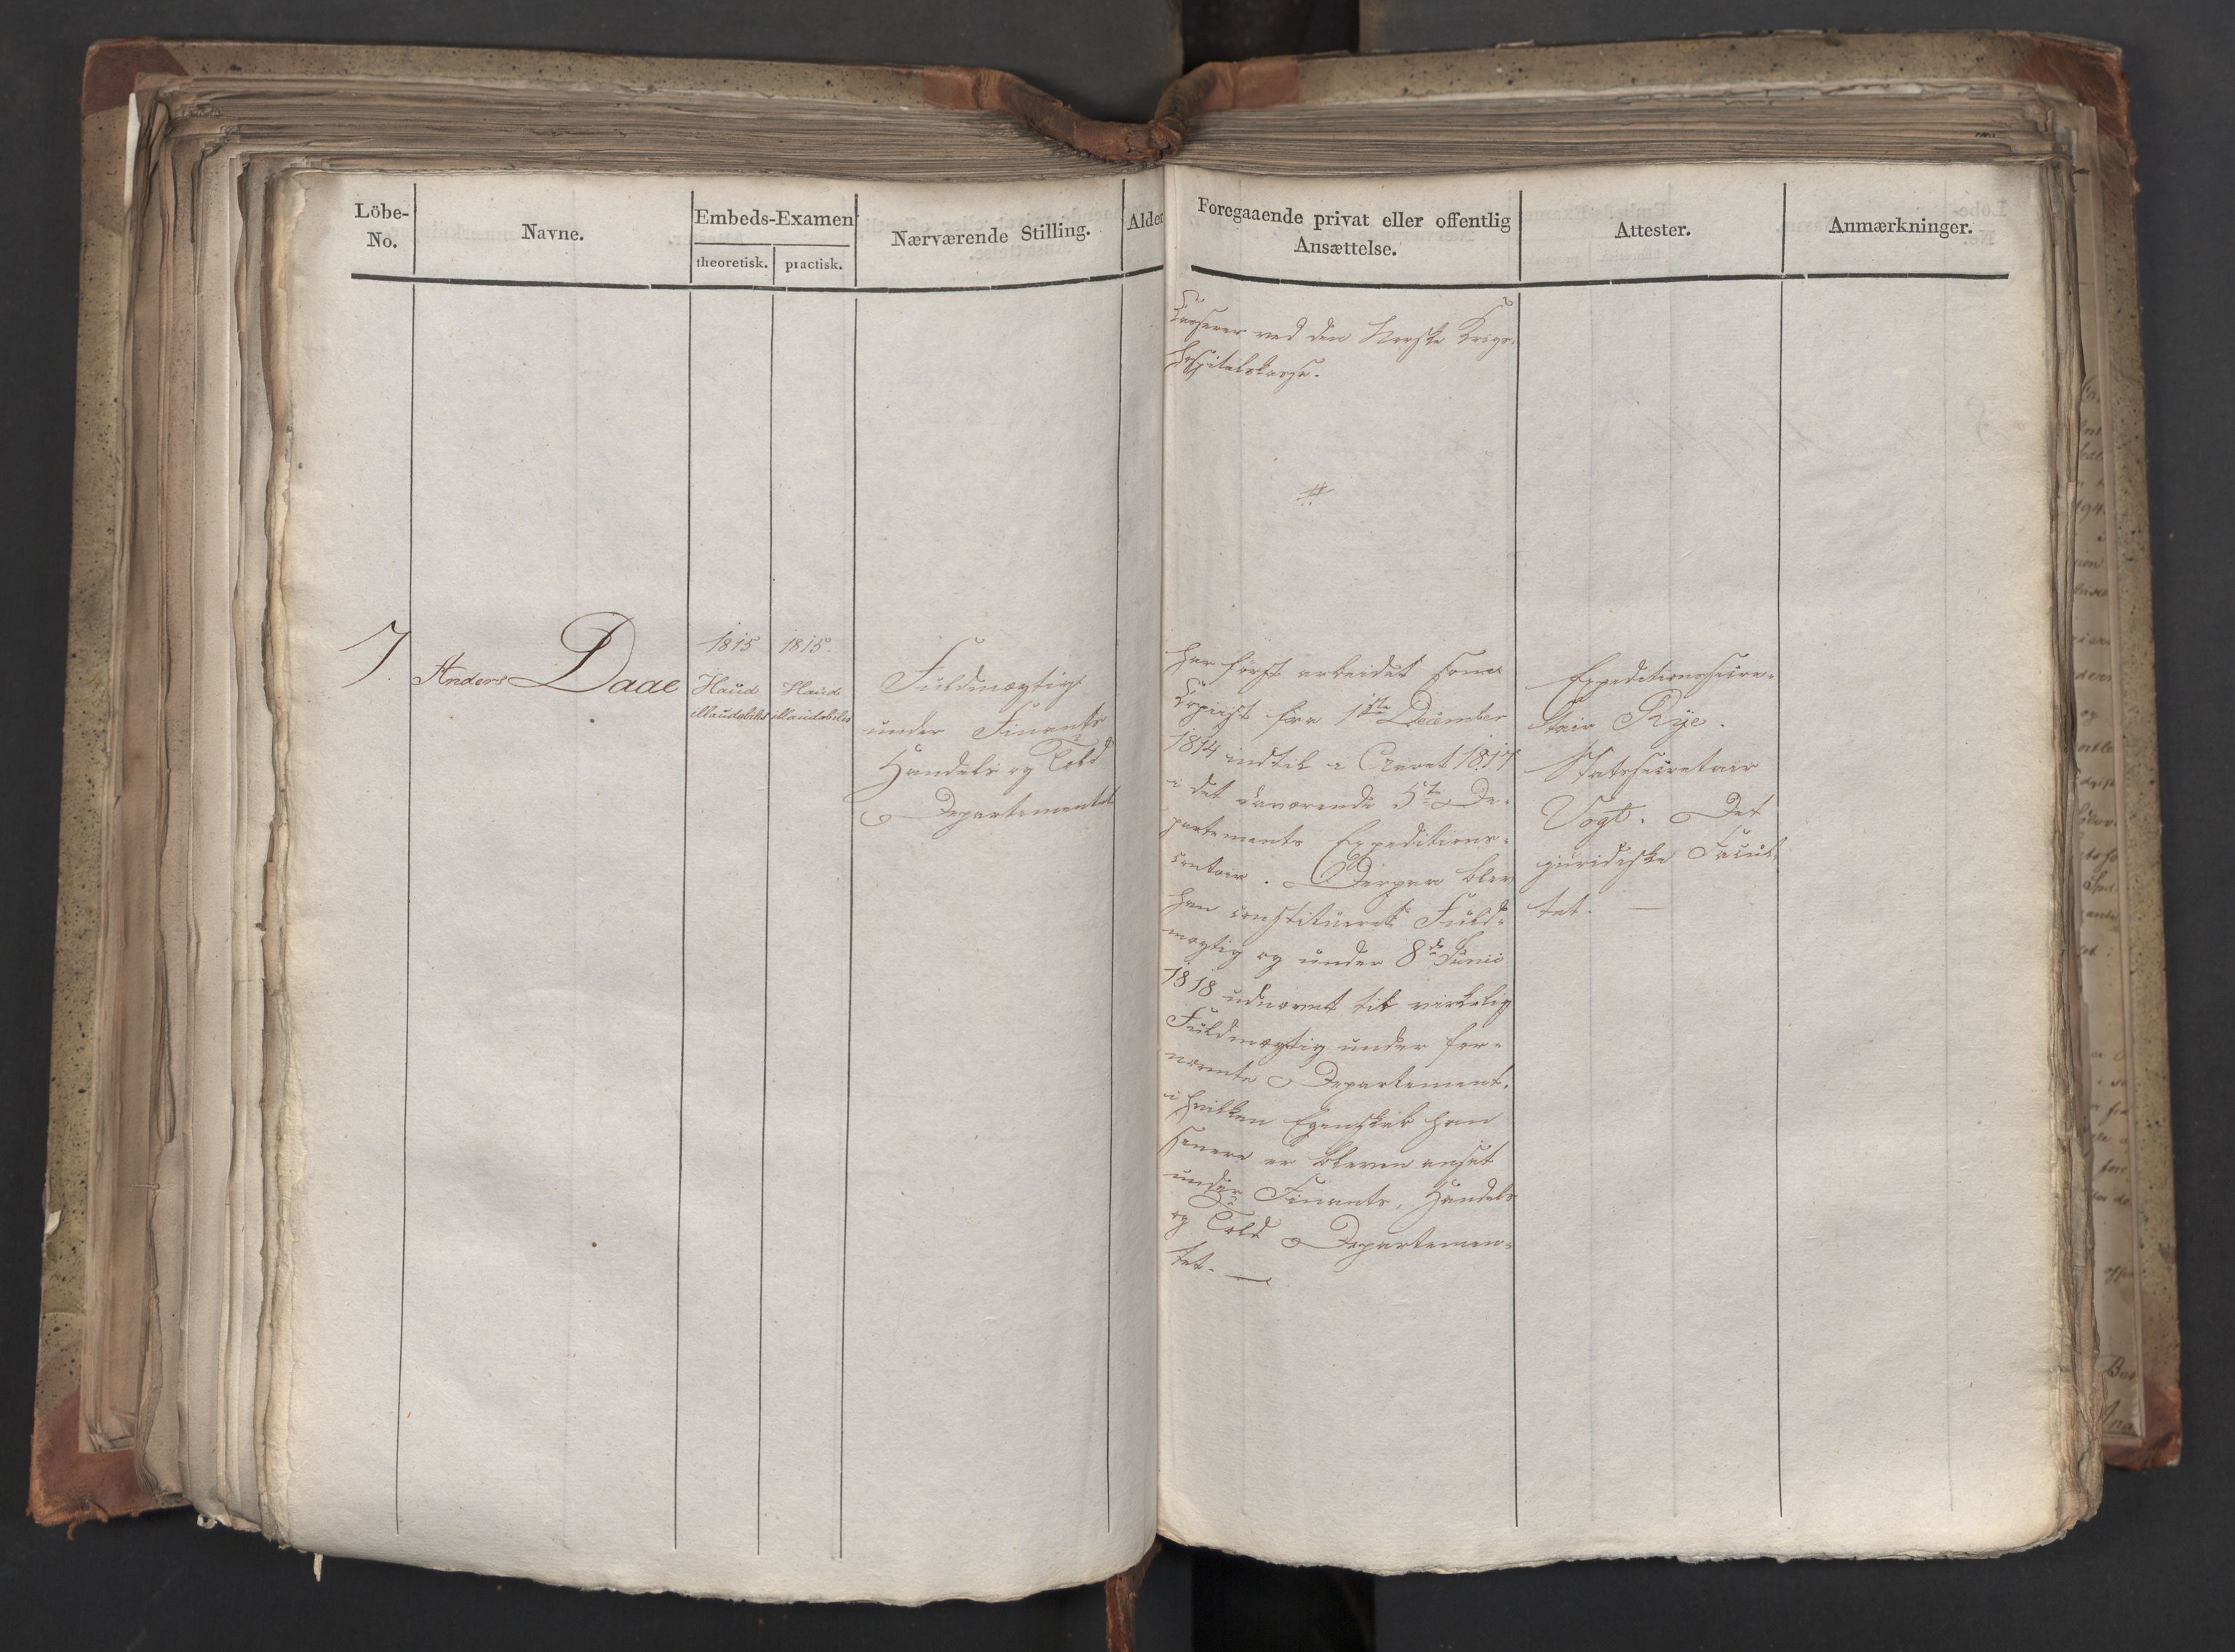 Löbe-
No.
Navne.
Embeds-Examen
theoretisk.
practisk.
Nærværende Stilling.
Alder
Foregaaende privat eller offentlig
Ansættelse.
Attester.
Anmærkninger.
Casserer ved den Norske Krigs-
hospitalskasse.
7.
Anders Daae
1815
Haud
illaudabilis
1815.
Haud
illaudabilis
Fuldmægtig
under Finants
Handels og Told
Departementet
Har först arbeidet som
Copiist fra 1ste December
1814 indtil i Aaret 1817
i det daværende 5te De-
partements Expeditions-
contoir. Derpaa blev
han constitueret Fuld-
mægtig og under 8de Junii
1818 udnævnt til virkelig
Fuldmægtig under for-
nævnte Departement,
i hvilken Egenskab han
senere er bleven ansat
under Finants, Handels
og Told Departemen-
tet. —
Expeditionssecre-
tair Rye.
Statssecretair
Vogt. Det
juridiske Facul-
tet. —